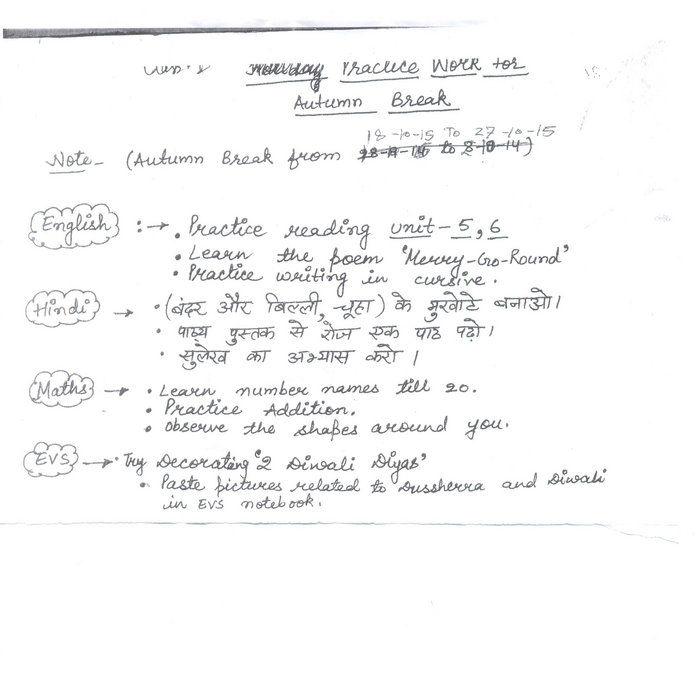 Practice Work for
Autumn Break
18-10-15 To 27-10-15
Note- (Autumn Break from )
English :→ • Practice reading unit-5, 6
• Learn the poem 'Merry-Go-Round'
• Practice writing in cursive.
Hindi → • (बंदर और बिल्ली, चूहा) के मुखोटे बनाओ।
• पाठ्य पुस्तक से रोज एक पाठ पढ़ो।
• सुलेख का अभ्यास करो ।
Maths → • Learn number names till 20.
• Practice Addition.
• Observe the shapes around you.
EVS → • Try Decorating '2 Diwali Diyas'
• Paste pictures related to Dussherra and Diwali
in EVS notebook.